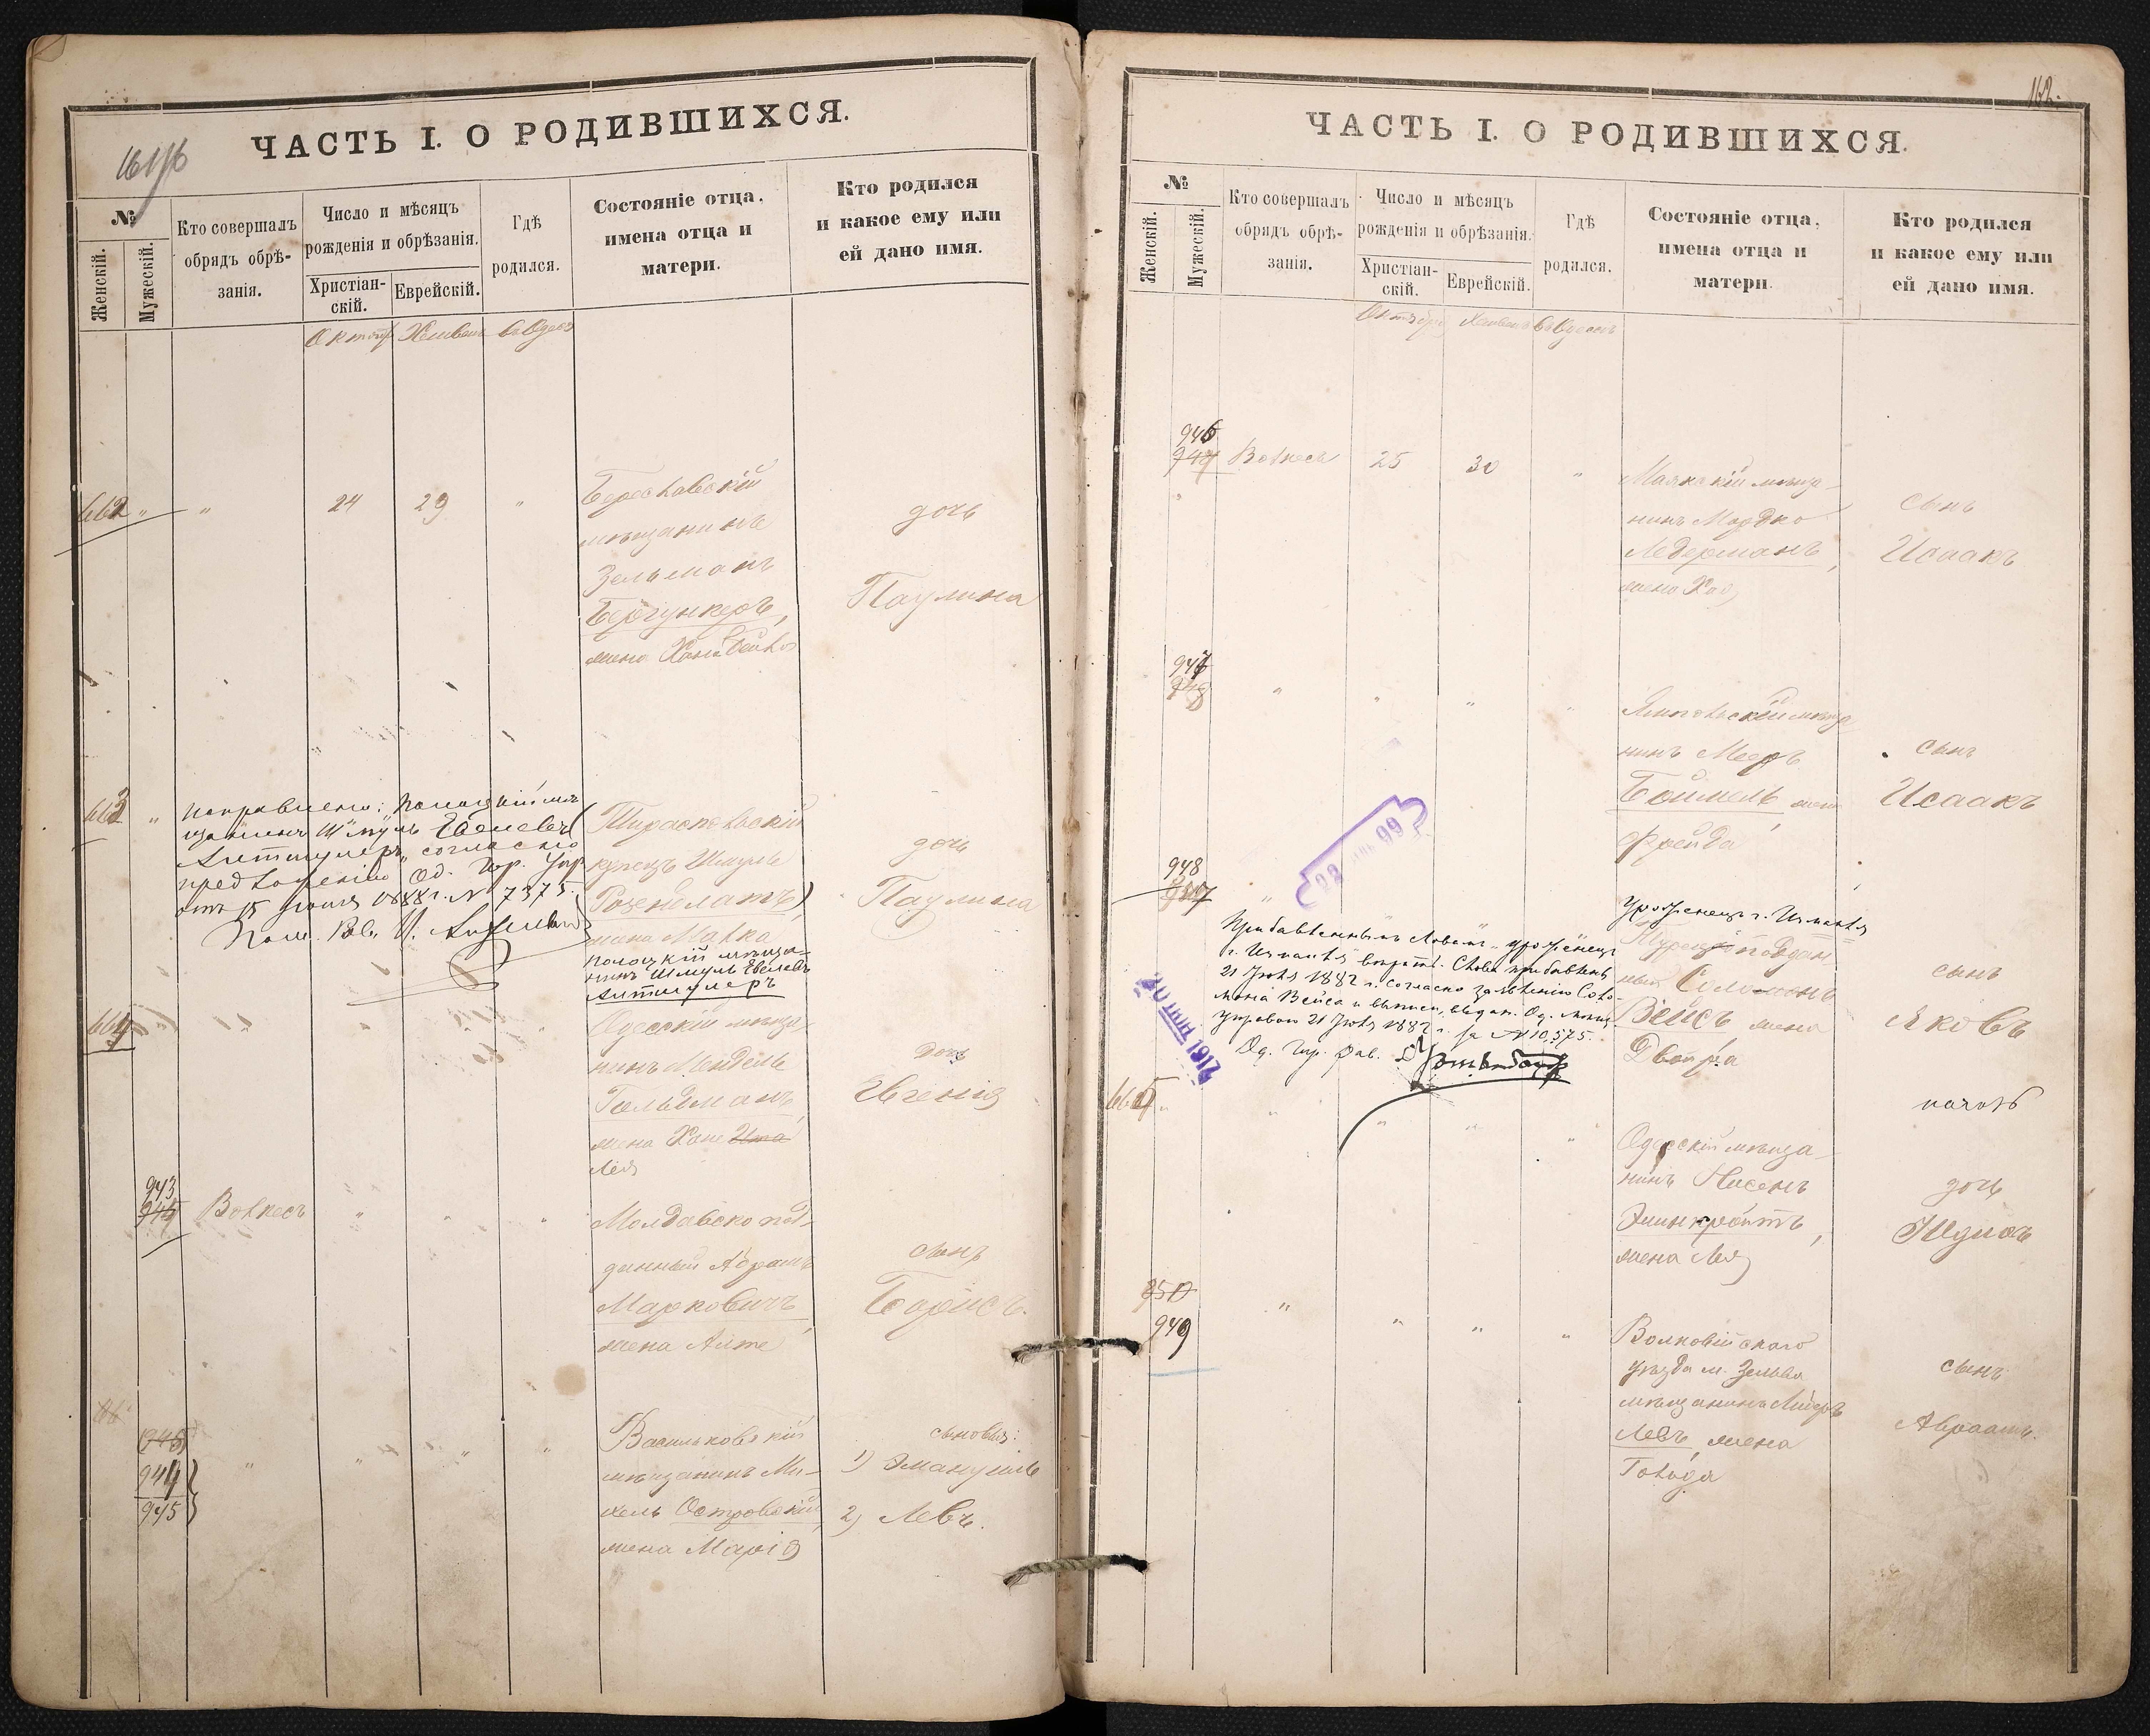 ЧАСТЬ I. О РОДИВШИХСЯ.
№
Женскій.
Мужескій.
Кто совершалъ
обрядъ обрѣ-
занія.
Число и мѣсяцъ
рожденія и обрѣзанія.
Христіан-
скій.
Еврейскій.
Гдѣ
родился.
Состояніе отца,
имена отца и
матери.
Кто родился
и какое ему или
ей дано имя.
662 " " 24 29 "
мѣщанинъ
Зельманъ
Бергункеръ,
жена Хана Бейла
дочь
Паулина
663 "
исправлено: Полоцкій мѣ-
щанинъ Шмуль Евелевъ
Альтшулеръ, согласно
предложенію Од. Гор. Упр.
отъ 15 1888 г. № 7375.
Тираспольскій
купецъ Шмуль
Розенблатъ)
жена Малка
полоцкій мѣща-
нинъ Шмуль Евелевъ
Альтшулеръ
дочь
Паулина
664
Одесскій мѣща-
нинъ Мендель
Гольдманъ,
жена Хане Ита
Лея
дочь
Евгенія
943
Волкесъ
Молдавско под-
данный Абрамъ
Марковичъ,
жена
сынъ
Борисъ.
944
945
Васильковскій
мѣщанинъ Ми-
хель Островскій,
жена Марія
сыновья:
1) Эмануиль
2) Левъ.
162.
ЧАСТЬ I. О РОДИВШИХСЯ.
№
Женскій.
Мужескій.
Кто совершалъ
обрядъ обрѣ-
занія.
Число и мѣсяцъ
рожденія и обрѣзанія.
Христіан-
скій.
Еврейскій.
Гдѣ
родился.
Состояніе отца,
имена отца и
матери.
Кто родился
и какое ему или
ей дано имя.
946
Волкесъ 25 30 "
Маякскій мѣща-
нинъ Мордко
Ледерманъ,
жена Хая
сынъ
Исаакъ
947
нинъ Мееръ
Боймель жена
Фрейда
сынъ
Исаакъ
948
Прибавленнымъ словамъ "уроженецъ
г. Измаила" вѣрить. Слова прибавлены
21 Іюля 1882 г. согласно заявленію Соло-
мона Вейса и выписи, выдан. Од. мѣщ.
управою 21 Іюля 1882 г. за № 10,575.
Од. Гор. Рав.
20 1917
уроженецъ г. Измаила
Турецко поддан-
ный Соломонъ
Вейсъ жена
Двойра
сынъ
Яковъ
665
Одесскій мѣща-
нинъ Нисенъ
жена Лея
дочь
950
949
Волковійскаго
уѣзда м. Зельва
мѣщанинъ
Левъ, жена
Голода
сынъ
Авраамъ.